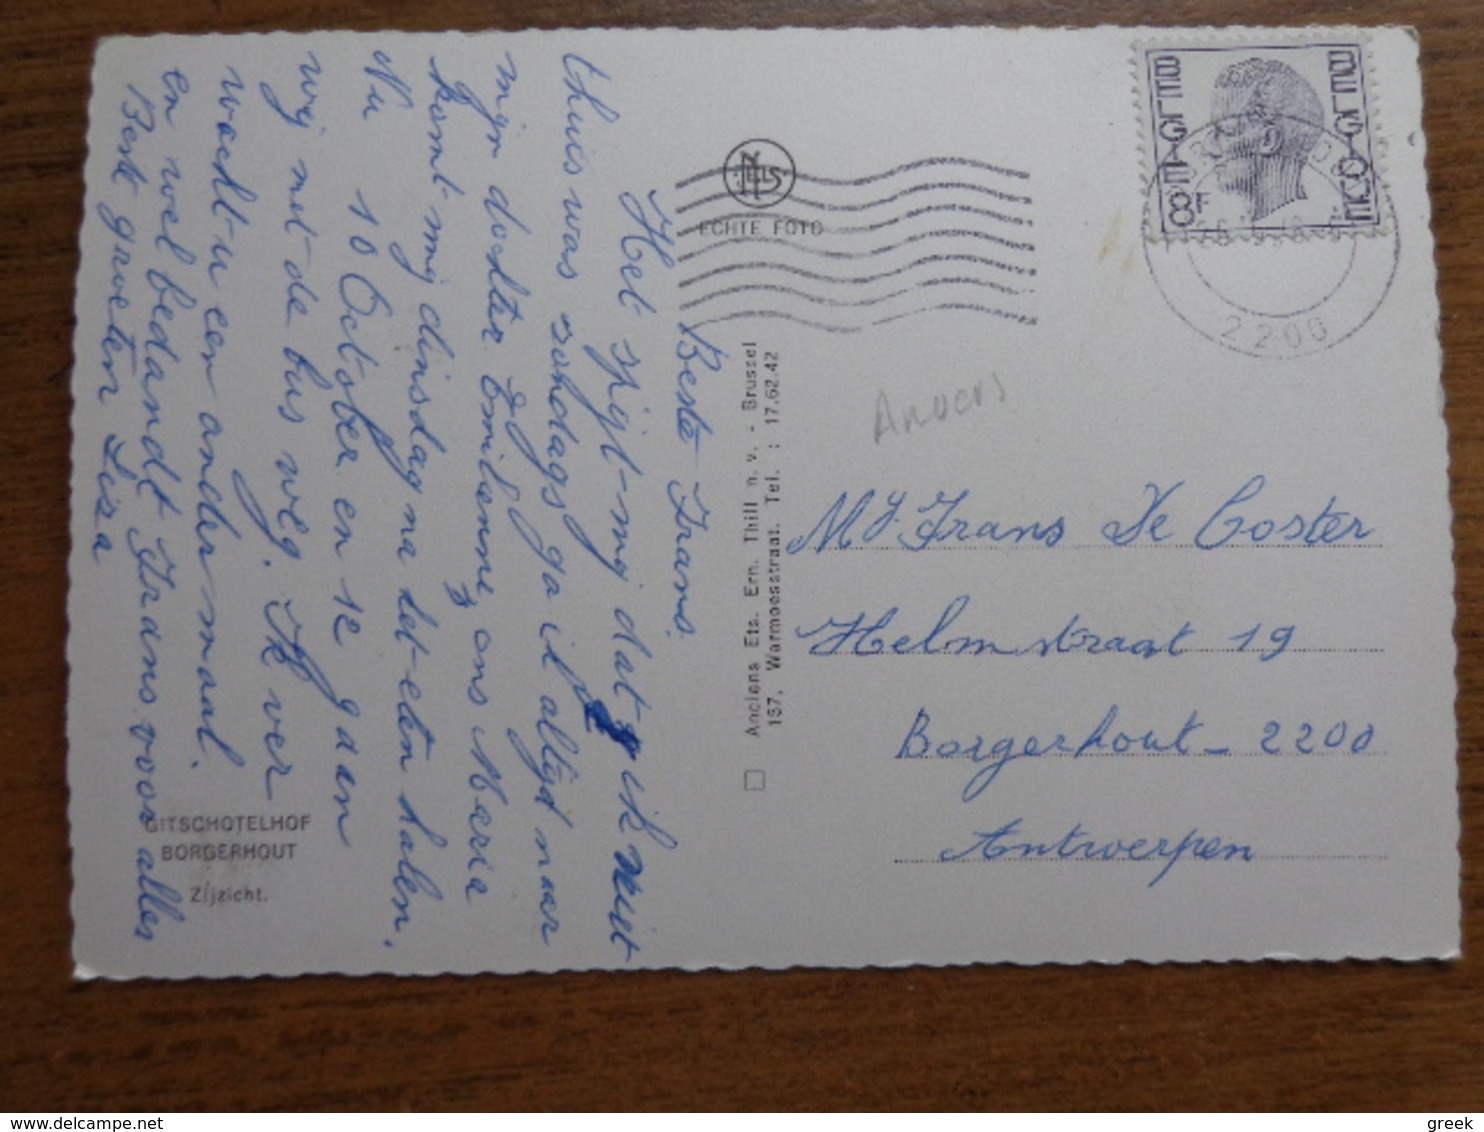 Beste Frans.
Het spijt-mij dat ik niet
thuis was zondags ga ik altijd naar
mijn dochter Emilenne, ons Maria
komt mij dinsdag na let-eten halen.
Nu 10 October en 12 gaan
wij met de bus weg. Ik ver
wacht-u een ander maal.
en wel bedandt Frans voor alles
Best groeten Lisa
NELS
ECHTE FOTO
Anciens Ets. Ern. Thill n. v. - Brussel
157, Warmoesstraat. Tel. : 17.62.42
GITSCHOTELHOF
BORGERHOUT
Zijzicht.
BELGIE
BELGIQUE
8F
2200
Anvers
Mr. Frans De Coster
Helmstraat 19
Borgerhout - 2200
Antwerpen
greek